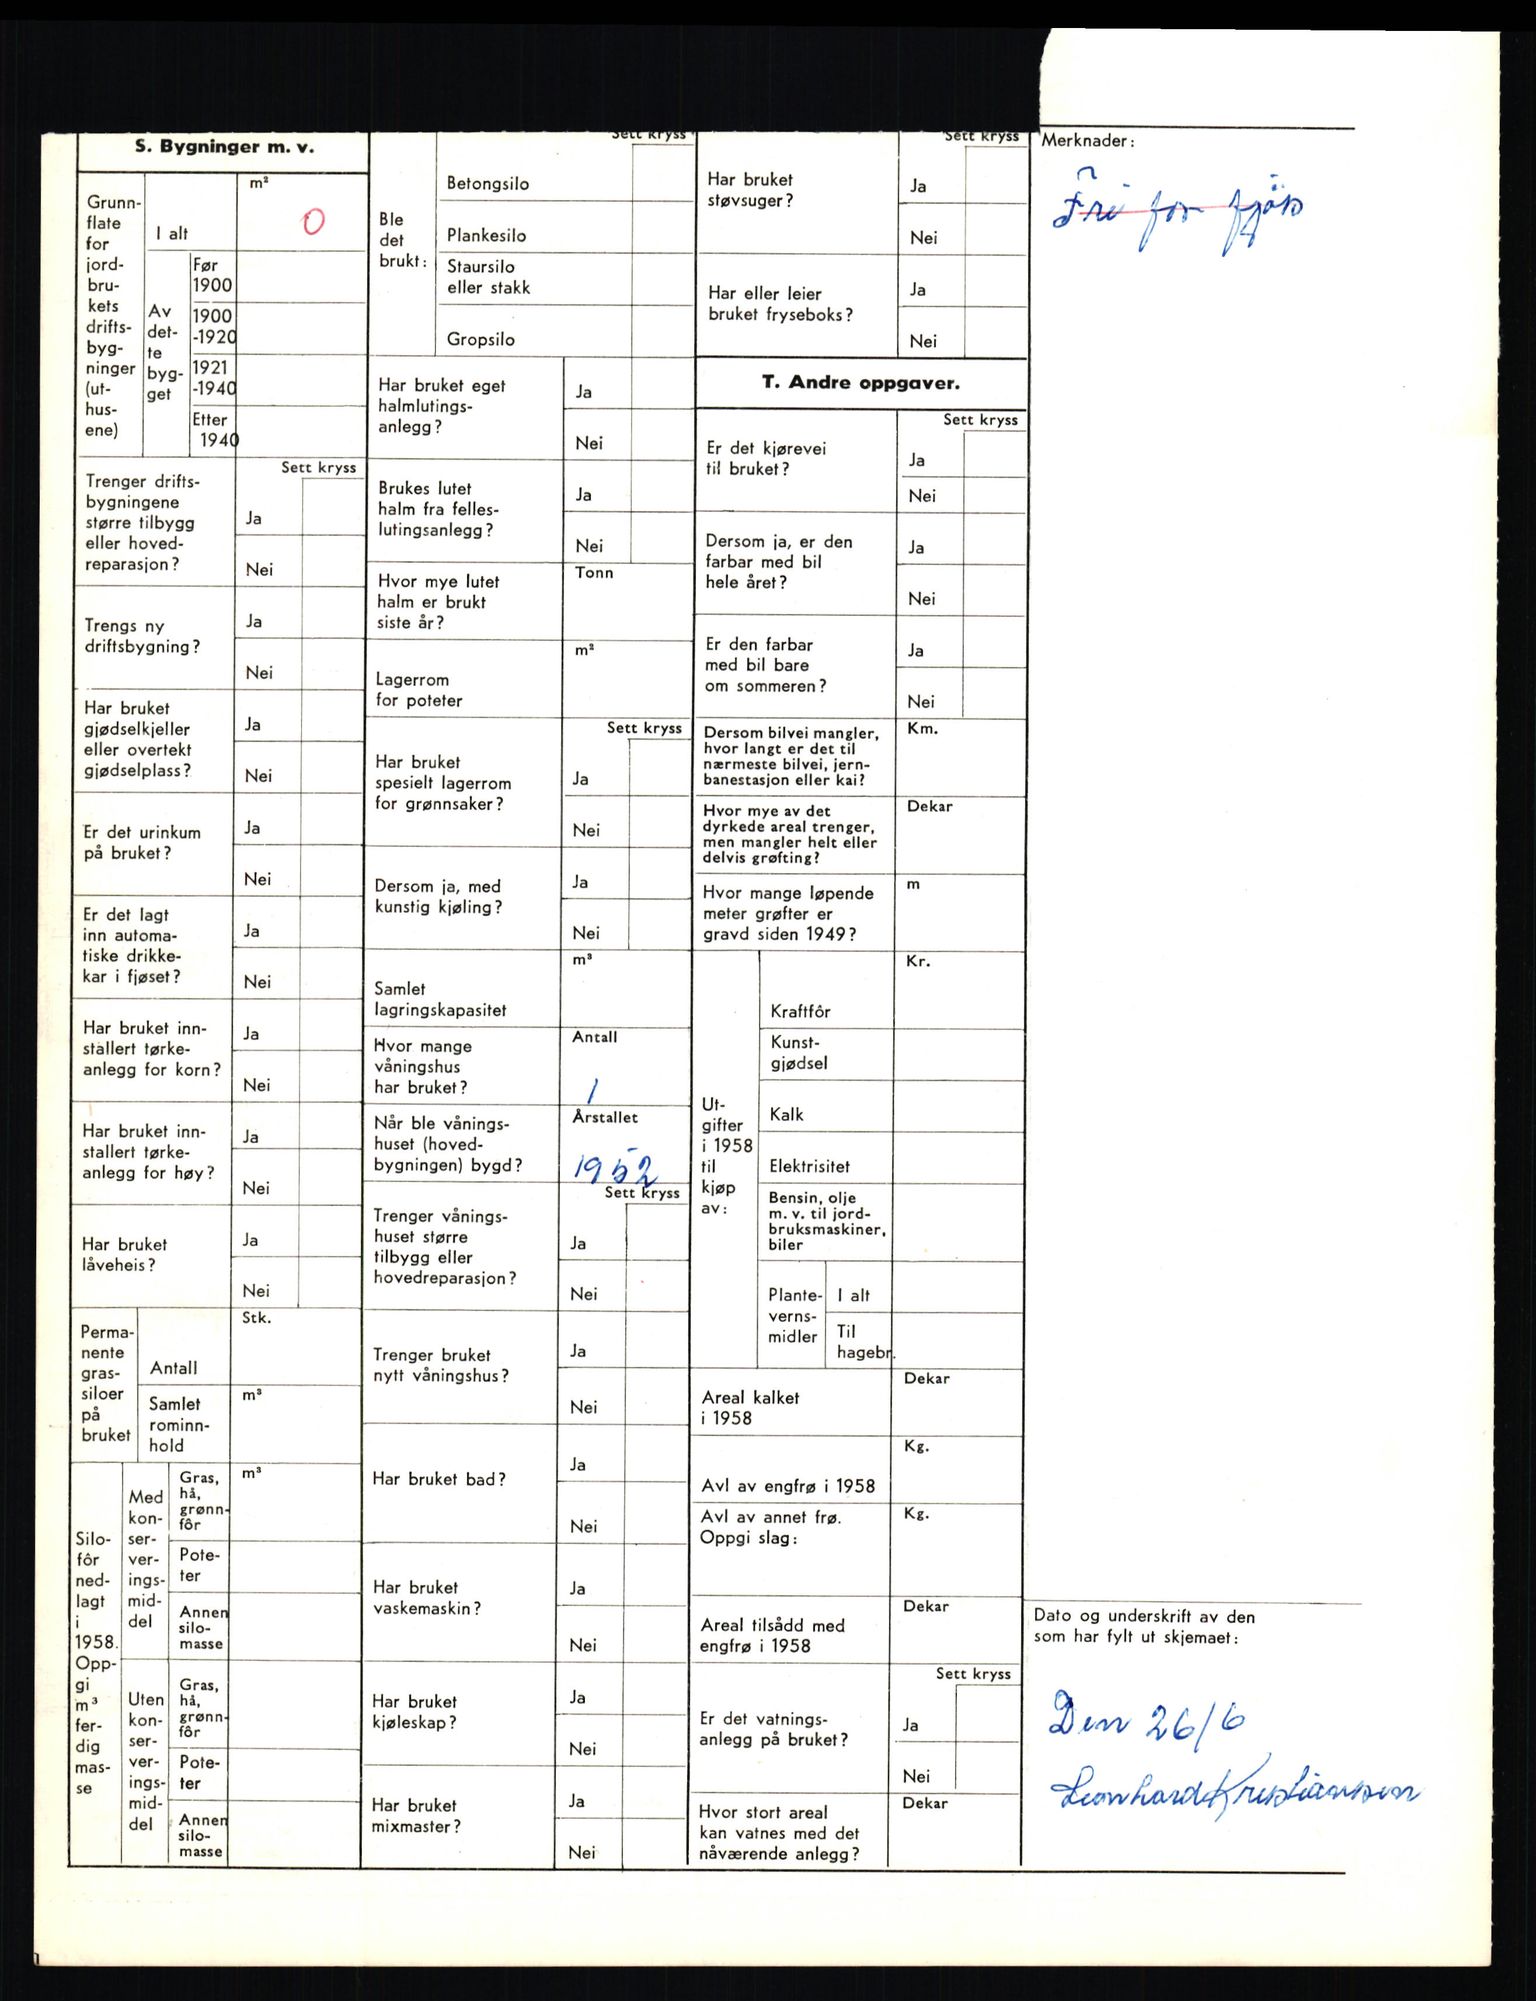 S. Bygninger m. v.
Grunn-
flate
for
jord-
bru-
kets
drifts-
byg-
ninger
(ut-
hus-
ene)
I alt
m²
0
Av
det-
te
byg-
get
Før
1900
1900
-1920
1921
-1940
Etter
1940
Sett kryss
Trenger drifts-
bygningene
større tilbygg
eller hoved-
reparasjon?
Ja
Nei
Trengs ny
driftsbygning?
Ja
Nei
Har bruket
gjødselkjeller
eller overtekt
gjødselplass?
Ja
Nei
Er det urinkum
på bruket?
Ja
Nei
Er det lagt
inn automa-
tiske drikke-
kar i fjøset?
Ja
Nei
Har bruket inn-
stallert tørke-
anlegg for korn?
Ja
Nei
Har bruket inn-
stallert tørke-
anlegg for høy?
Ja
Nei
Har bruket
låveheis?
Ja
Nei
Perma-
nente
gras-
siloer
på
bruket
Antall
Stk.
Samlet
rominn-
hold
m³
Silo-
fôr
ned-
lagt
i
1958.
Opp-
gi
m³
fer-
dig
mas-
se
Med
kon-
ser-
ver-
ings-
mid-
del
Gras,
hå,
grønn-
fôr
m³
Pote-
ter
Annen
silo-
masse
Uten
kon-
ser-
ver-
ings-
mid-
del
Gras,
hå,
grønn-
fôr
Pote-
ter
Annen
silo-
masse
Sett kryss
Ble
det
brukt:
Betongsilo
Plankesilo
Staursilo
eller stakk
Gropsilo
Har bruket eget
halmlutings-
anlegg?
Ja
Nei
Brukes lutet
halm fra felles-
lutingsanlegg?
Ja
Nei
Hvor mye lutet
halm er brukt
siste år?
Tonn
Lagerrom
for poteter
m²
Sett kryss
Har bruket
spesielt lagerrom
for grønnsaker?
Ja
Nei
Dersom ja, med
kunstig kjøling?
Ja
Nei
Samlet
lagringskapasitet
m³
Hvor mange
våningshus
har bruket?
Antall
1
Når ble vånings-
huset (hoved-
bygningen) bygd?
Årstallet
1952
Sett kryss
Trenger vånings-
huset større
tilbygg eller
hovedreparasjon?
Ja
Nei
Trenger bruket
nytt våningshus?
Ja
Nei
Har bruket bad?
Ja
Nei
Har bruket
vaskemaskin?
Ja
Nei
Har bruket
kjøleskap?
Ja
Nei
Har bruket
mixmaster?
Ja
Nei
Sett kryss
Har bruket
støvsuger?
Ja
Nei
Har eller leier
bruket fryseboks?
Ja
Nei
T. Andre oppgaver.
Sett kryss
Er det kjørevei
til bruket?
Ja
Nei
Dersom ja, er den
farbar med bil
hele året?
Ja
Nei
Er den farbar
med bil bare
om sommeren?
Ja
Nei
Dersom bilvei mangler,
hvor langt er det til
nærmeste bilvei, jern-
banestasjon eller kai?
Km.
Hvor mye av det
dyrkede areal trenger,
men mangler helt eller
delvis grøfting?
Dekar
Hvor mange løpende
meter grøfter er
gravd siden 1949?
m
Ut-
gifter
i 1958
til
kjøp
av:
Kr.
Kraftfôr
Kunst-
gjødsel
Kalk
Elektrisitet
Bensin, olje
m. v. til jord-
bruksmaskiner,
biler
Plante-
verns-
midler
I alt
Til
hagebr.
Areal kalket
i 1958
Dekar
Avl av engfrø i 1958
Kg.
Avl av annet frø.
Oppgi slag:
Kg.
Areal tilsådd med
engfrø i 1958
Dekar
Sett kryss
Er det vatnings-
anlegg på bruket?
Ja
Nei
Hvor stort areal
kan vatnes med det
nåværende anlegg?
Dekar
Merknader:
Fri for fjøs
Dato og underskrift av den
som har fylt ut skjemaet:
Den 26/6
Leonhard Kristiansen